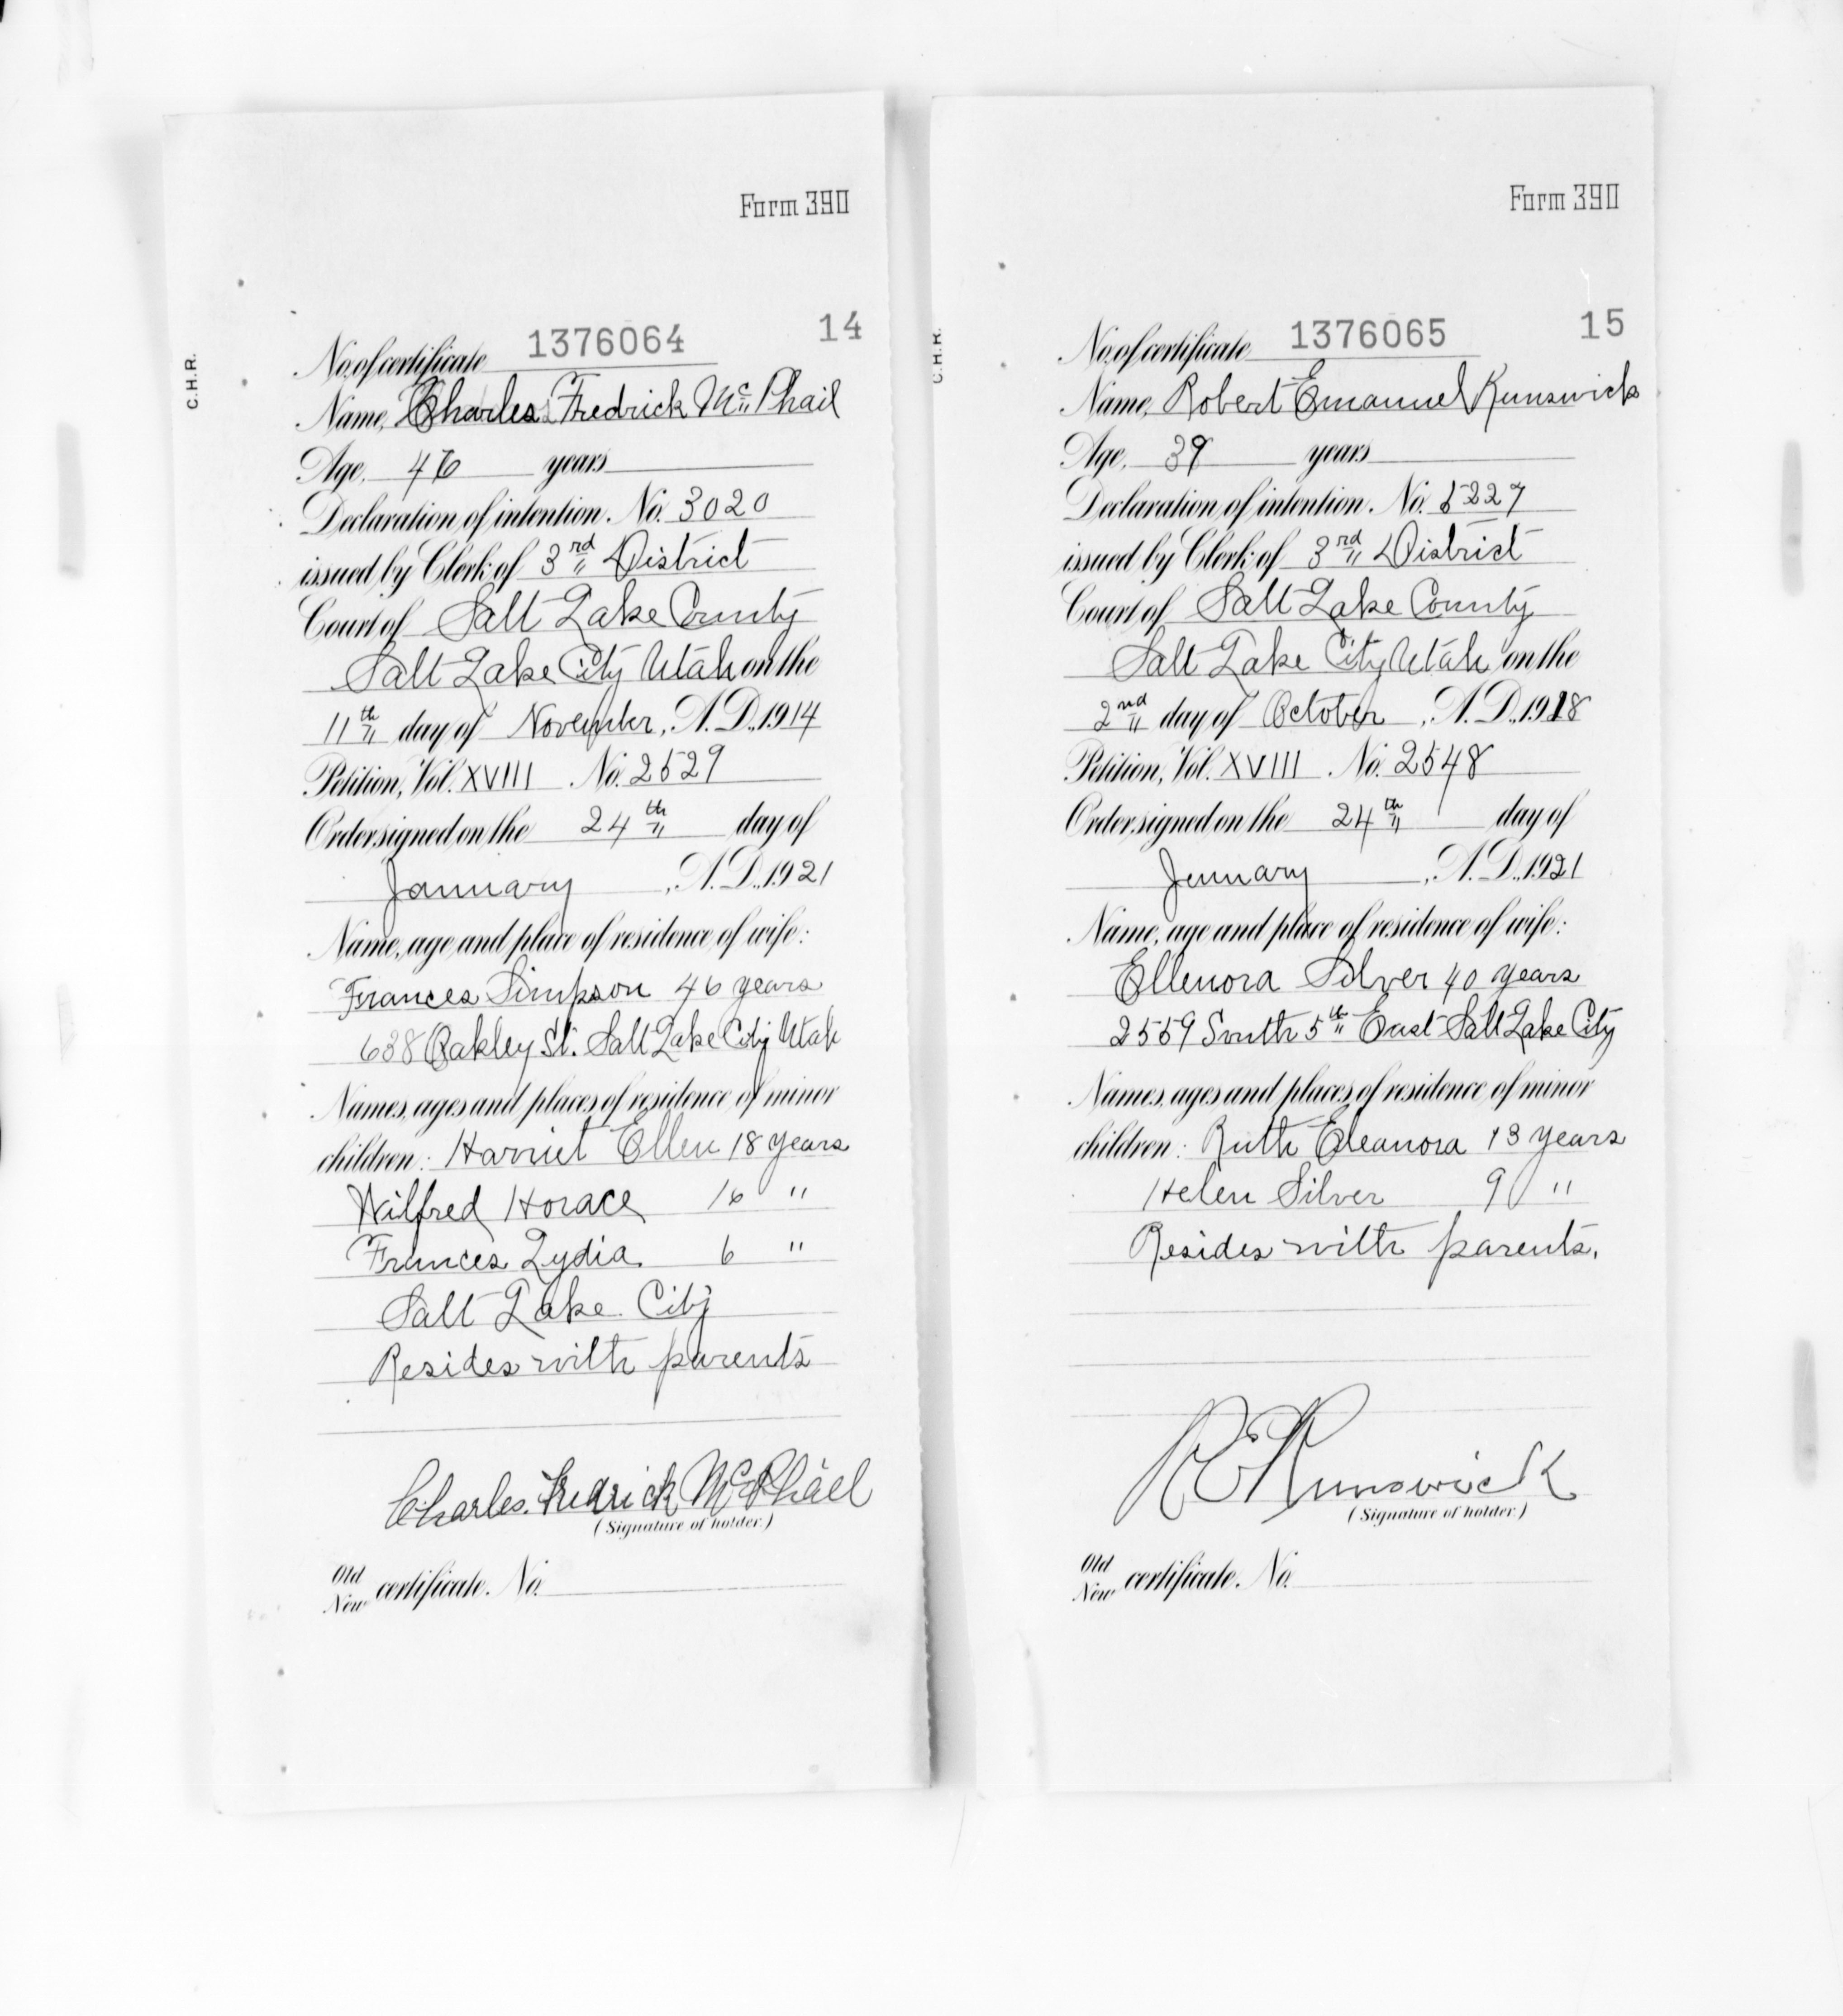 Form 390
C.H.R.
No. of certificate 1376064 14
Name, Charles Fredrick McPhail
Age, 46 years
Declaration of intention. No. 3020
issued by Clerk of 3rd District
Court of Salt Lake County
Salt Lake City Utah on the
11th day of November, A.D., 1914
Petition, Vol. XVIII No. 2529
Order signed on the 24th day of
January, A.D., 1921
Name, age and place of residence of wife:
Frances Simpson 46 years
638 Oakley St. Salt Lake City Utah
Names, ages and places of residence of minor
children: Harriet Ellen 18 years
Wilfred Horace 16 "
Frances Lydia 6 "
Salt Lake City
Resides with parents
Charles. Fredrick McPhail
(Signature of holder.)
Old
New certificate. No.
Form 390
C.H.R.
No. of certificate 1376065 15
Name, Robert Emanuel Runswick
Age, 39 years
Declaration of intention. No. 5227
issued by Clerk of 3rd District
Court of Salt Lake County
Salt Lake City Utah on the
2nd day of October, A.D., 1918
Petition, Vol. XVIII. No. 2548
Order signed on the 24th day of
January, A.D., 1921
Name, age and place of residence of wife:
Ellenora Silver 40 years
2559 South 5th East Salt Lake City
Names, ages and places of residence of minor
children: Ruth Eleanora 13 years
Helen Silver 9 "
Resides with parents.
R E Runswick
(Signature of holder.)
Old
New certificate. No.